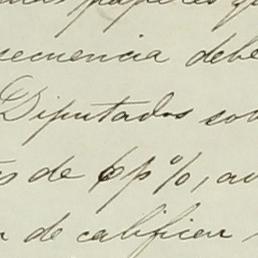 papeles q
secuencia debe
Diputados so
s de 6 p%, au
n de califica